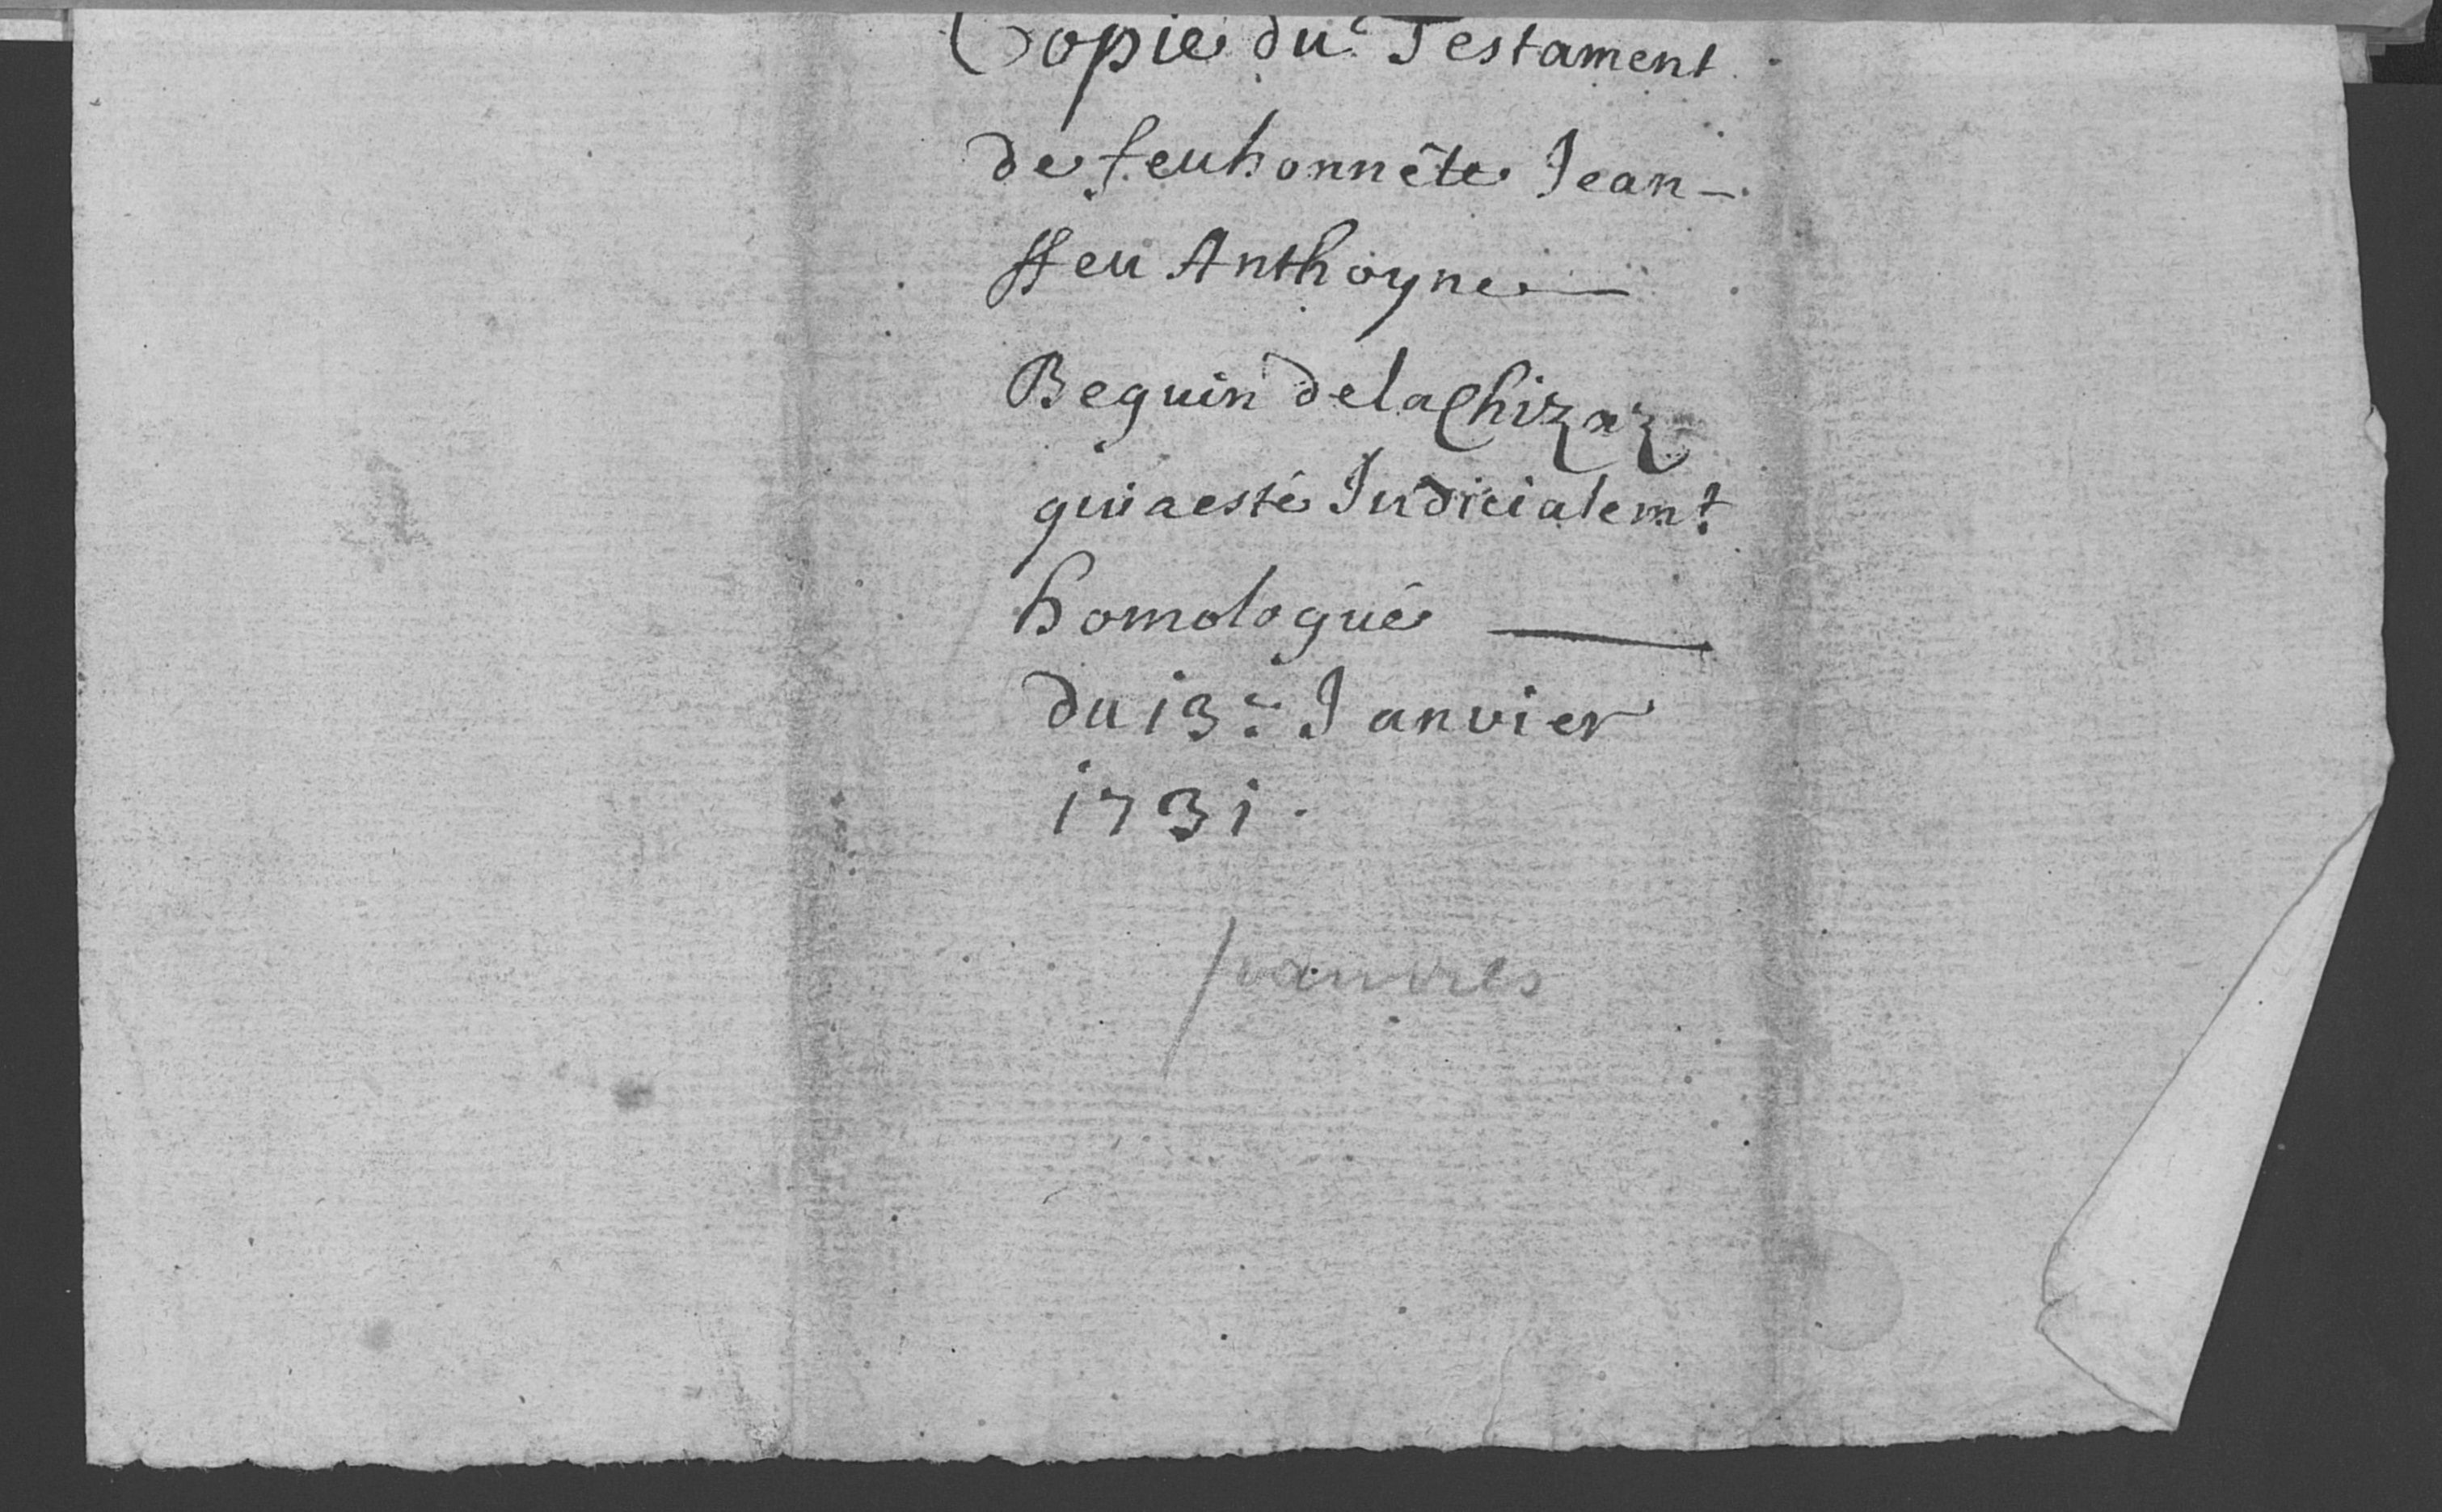 Copie du Testament
de feu honnête Jean-
ffeu Anthoyne —
Beguin de la Chizaz
qui a esté Judicialemt.
homologué —
du 13e. Janvier
1731.
pauvres